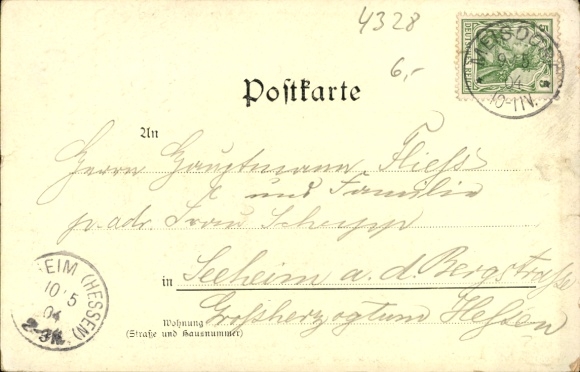 4328
6,-
DEUTSCHES REICH
5 5
MEISDORF
9 5
04
10-11V.
Postkarte
An
Herrn Hauptmann Fließ
und Familie
p. adr. Frau Schepp
in Seeheim a. d. Bergstraße
Großherzogtum Hessen
Wohnung
(Straße und Hausnummer)
EIM (HESSEN)
10 5
04
2-3N.